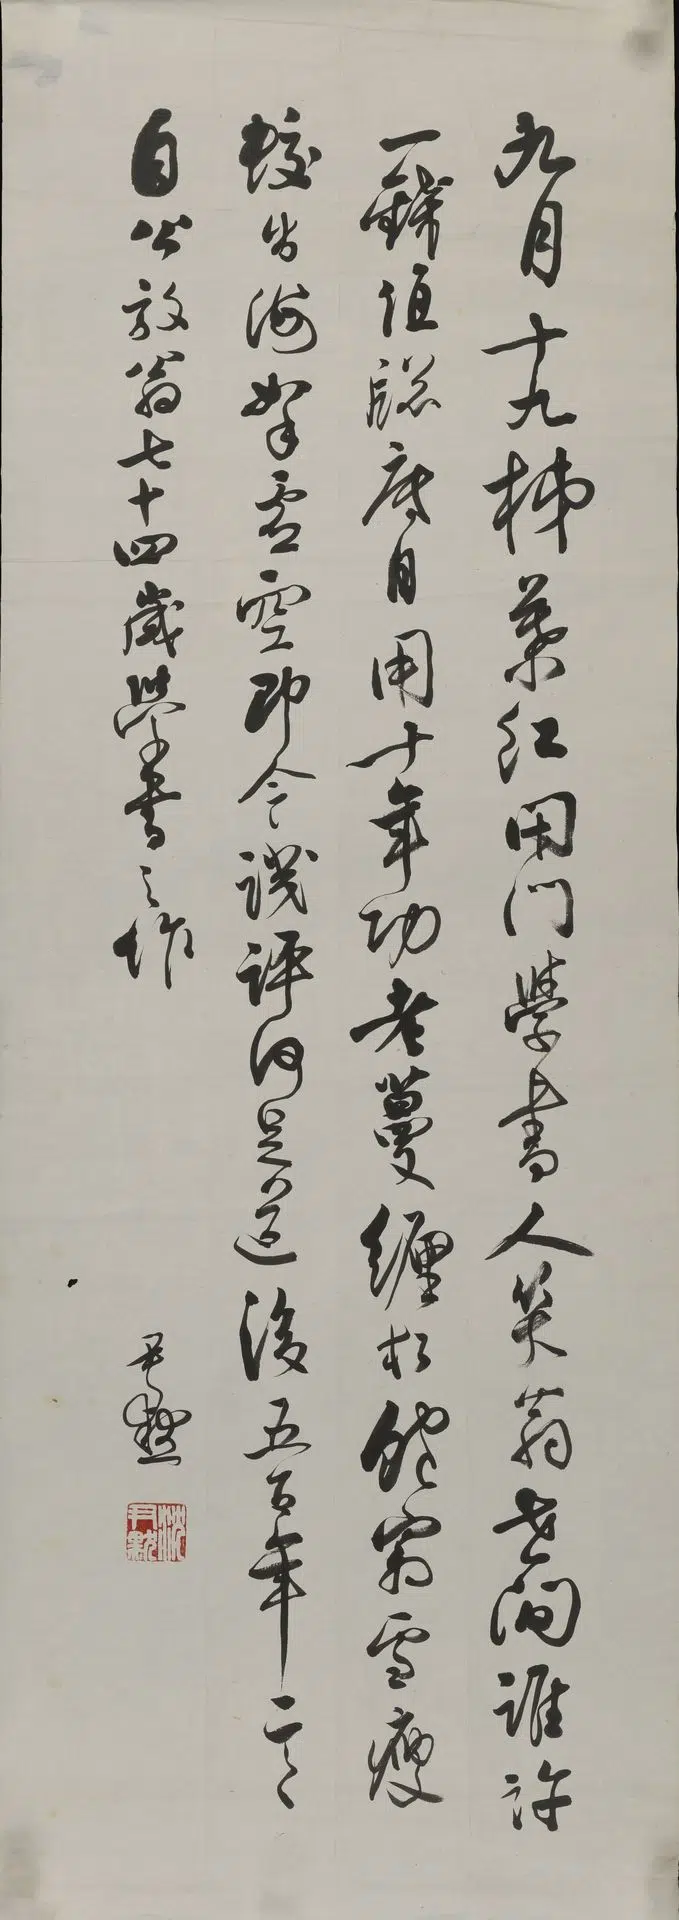 九月十九柿葉紅閉門學書人笑翁世間誰許
一錢值牕底自用十年功老蔓纏松飽霜雪瘦
蛟出海拏虛空即今譏評何足道後五百年言
自公放翁七十四歲學書之作
尹默
沈尹默